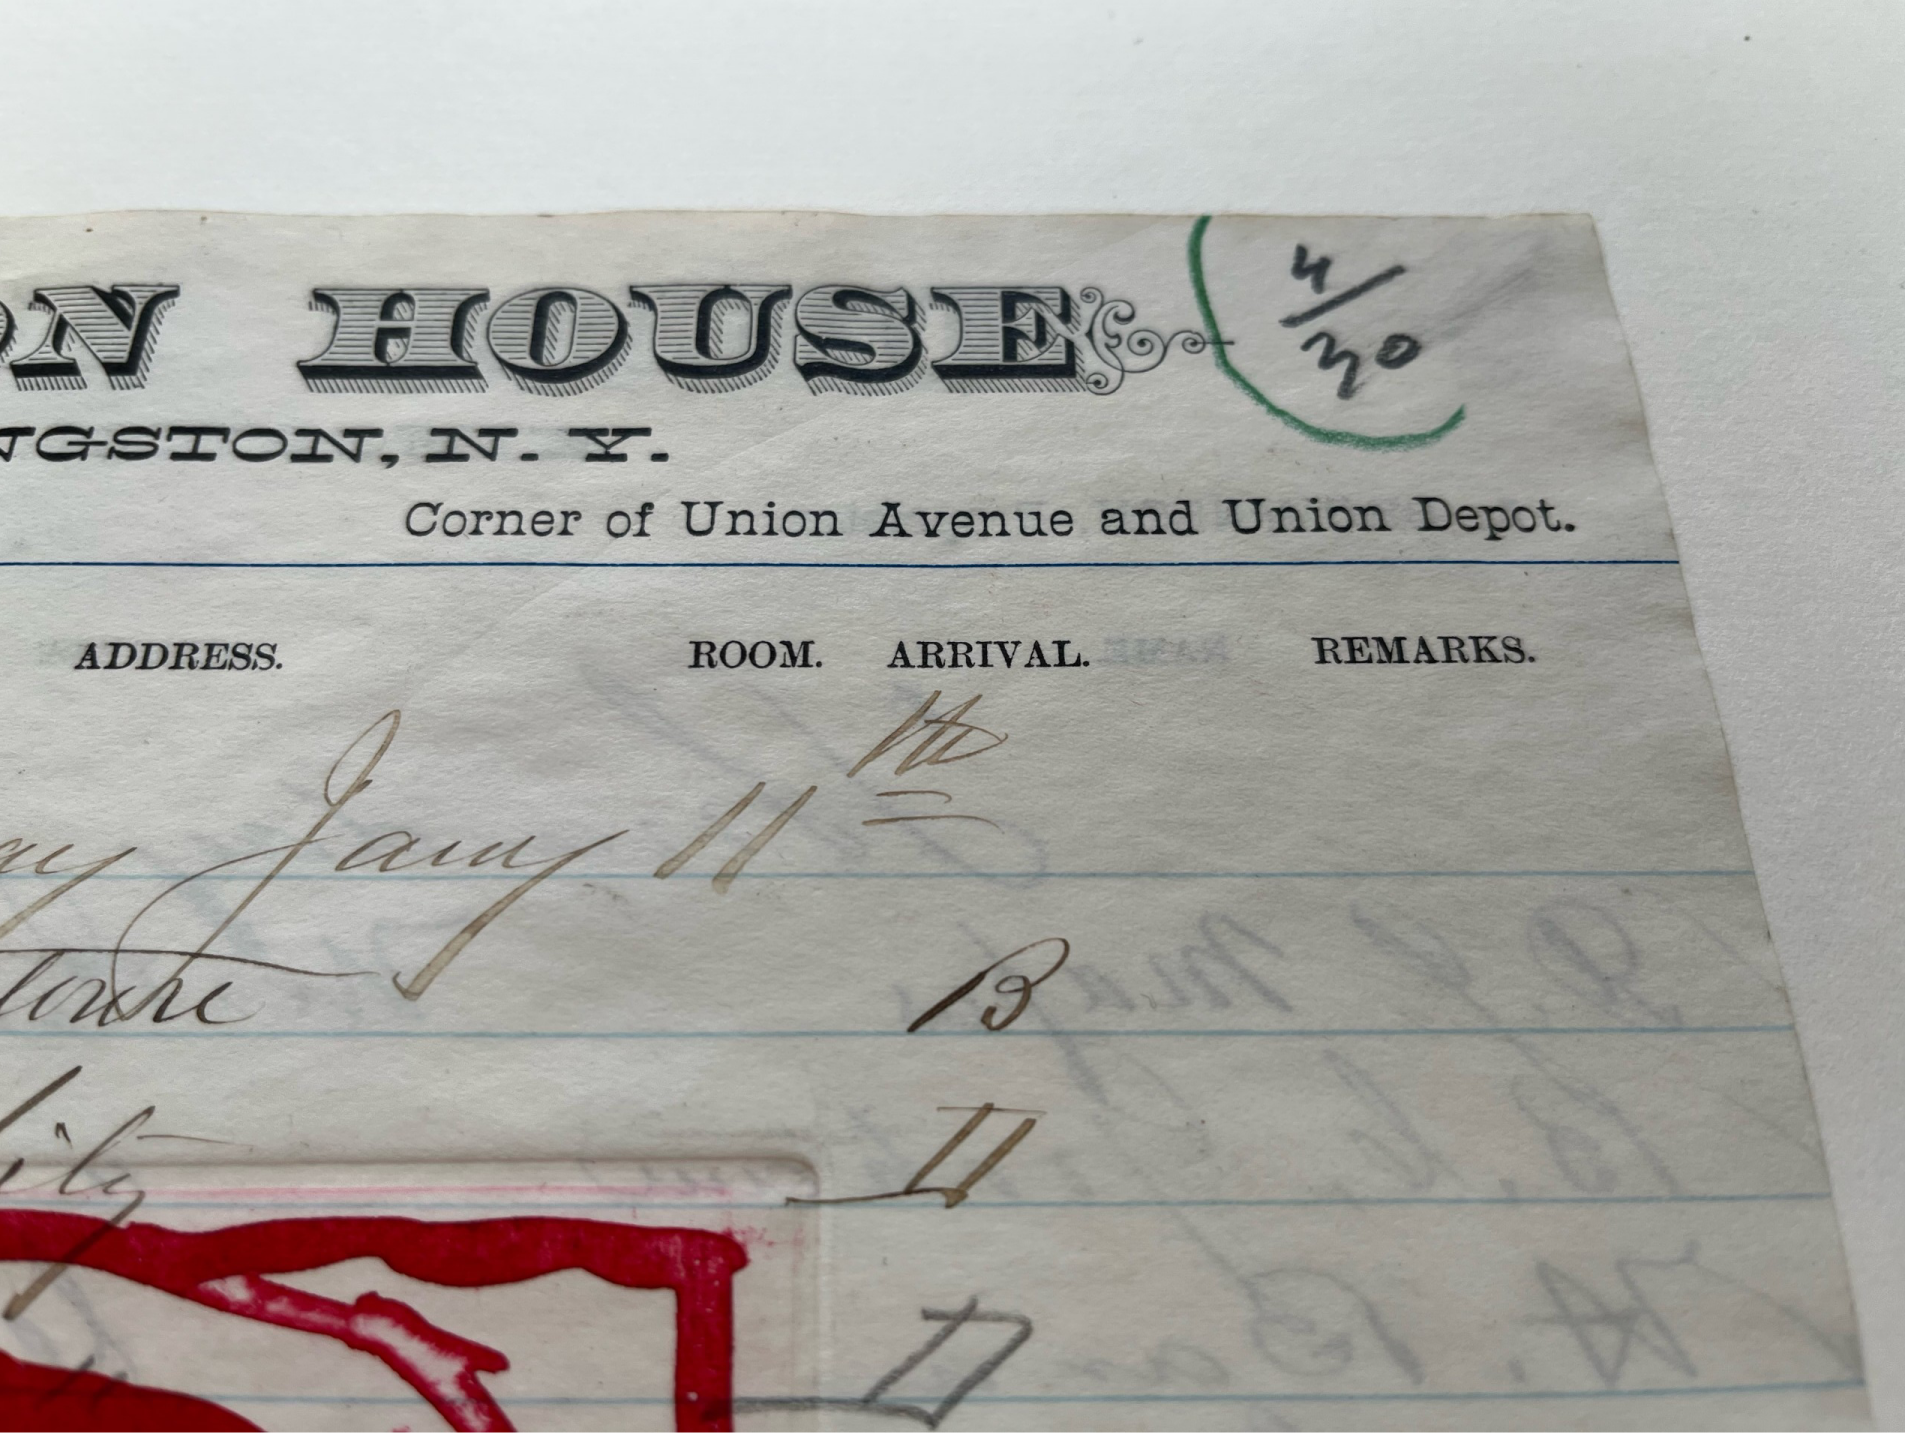 ON HOUSE
4/30
NGSTON, N. Y.
Corner of Union Avenue and Union Depot.
ADDRESS. ROOM. ARRIVAL. REMARKS.
ay Jany 11th
B
ity D
D